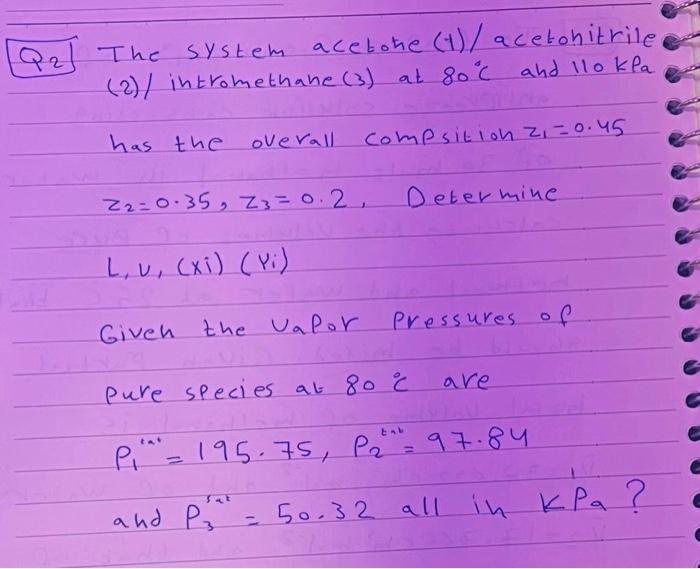 Q2 The system acetone (1)/ acetonitrile
(2)/ intromethane (3) at 80°C and 110 kPa
has the overall compsition z₁=0.45
z₂=0.35, z₃=0.2, Determine
L, V, (xi) (Yi)
Given the vapor pressures of
pure species at 80°C are
P₁ˢᵃᵗ = 195.75, P₂ˢᵃᵗ = 97.84
and P₃ˢᵃᵗ = 50.32 all in kPa ?